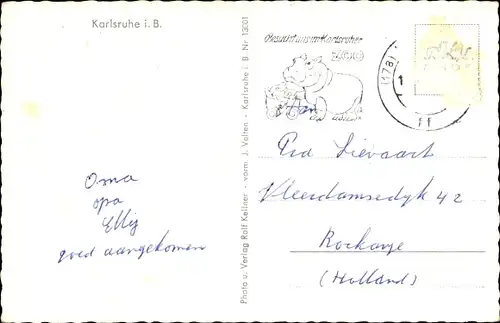 Karlsruhe i. B.
Oma
opa
Elly
goed aangekomen
Photo u. Verlag Rolf Kellner - vorm. J. Velten - Karlsruhe i. B. Nr 1300
Besucht unsern Karlsruher
ZOO
(17a)
Aan
Lievaart
Vleerdamsedijk 42
Rockanje
(Holland)